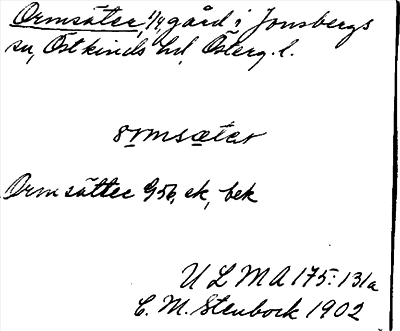 Ormsäter, 1/4 gård i Jonsbergs
sn, Östkinds hd, Österg. l.
ormsætər
Ormsätter G56, ek, bek
ULMA 175:131a
C. M. Stenbock 1902